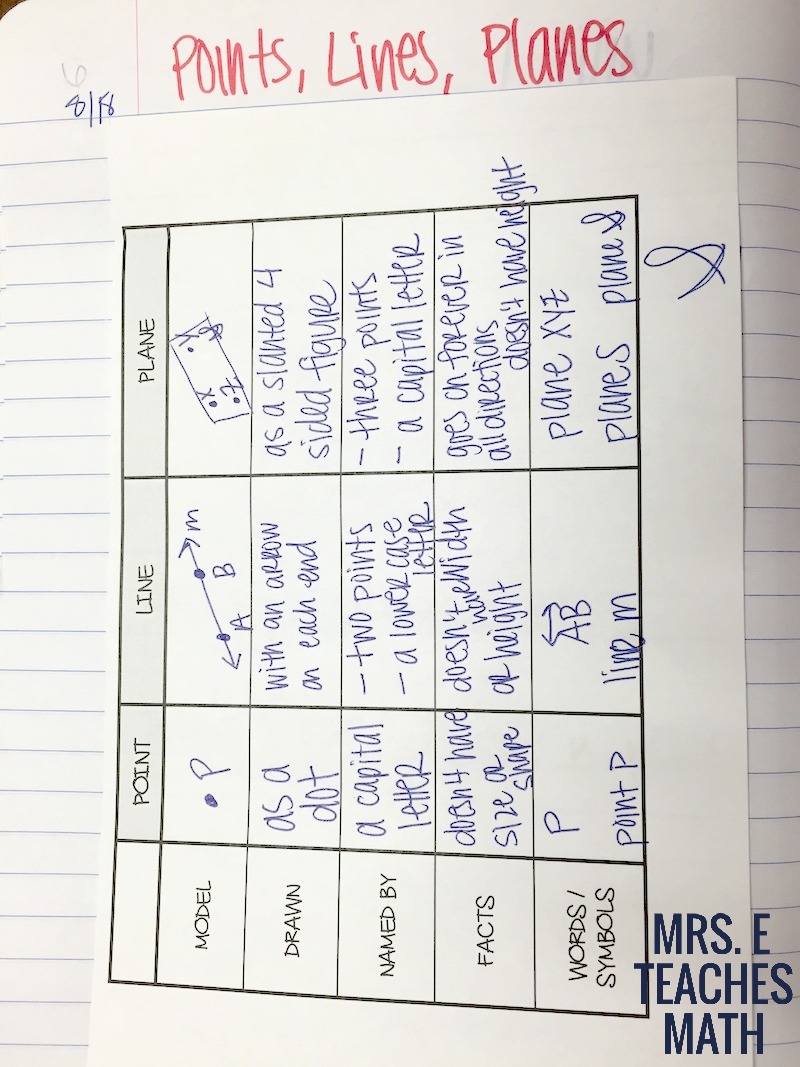 Points, Lines, Planes
8/18
POINT
LINE
PLANE
MODEL
• P
A
B
m
X
Y
Z
DRAWN
as a
dot
with an arrow
on each end
as a slanted 4
sided figure
NAMED BY
a capital
letter
- two points
- a lower case
letter
- three points
- a capital letter
FACTS
doesn't have
size or
shape
doesn't have width
or height
goes on forever in
all directions
doesn't have height
WORDS /
SYMBOLS
P
point P
AB
line m
plane XYZ
plane S plane S
S
MRS. E
TEACHES
MATH